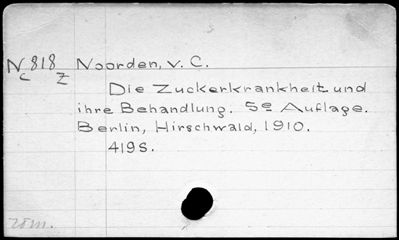 Nc 818 z Noorden, v. C.
Die Zuckerkrankheit und
ihre Behandlung. 5e Auflage.
Berlin, Hirschwald, 1910.
419S.